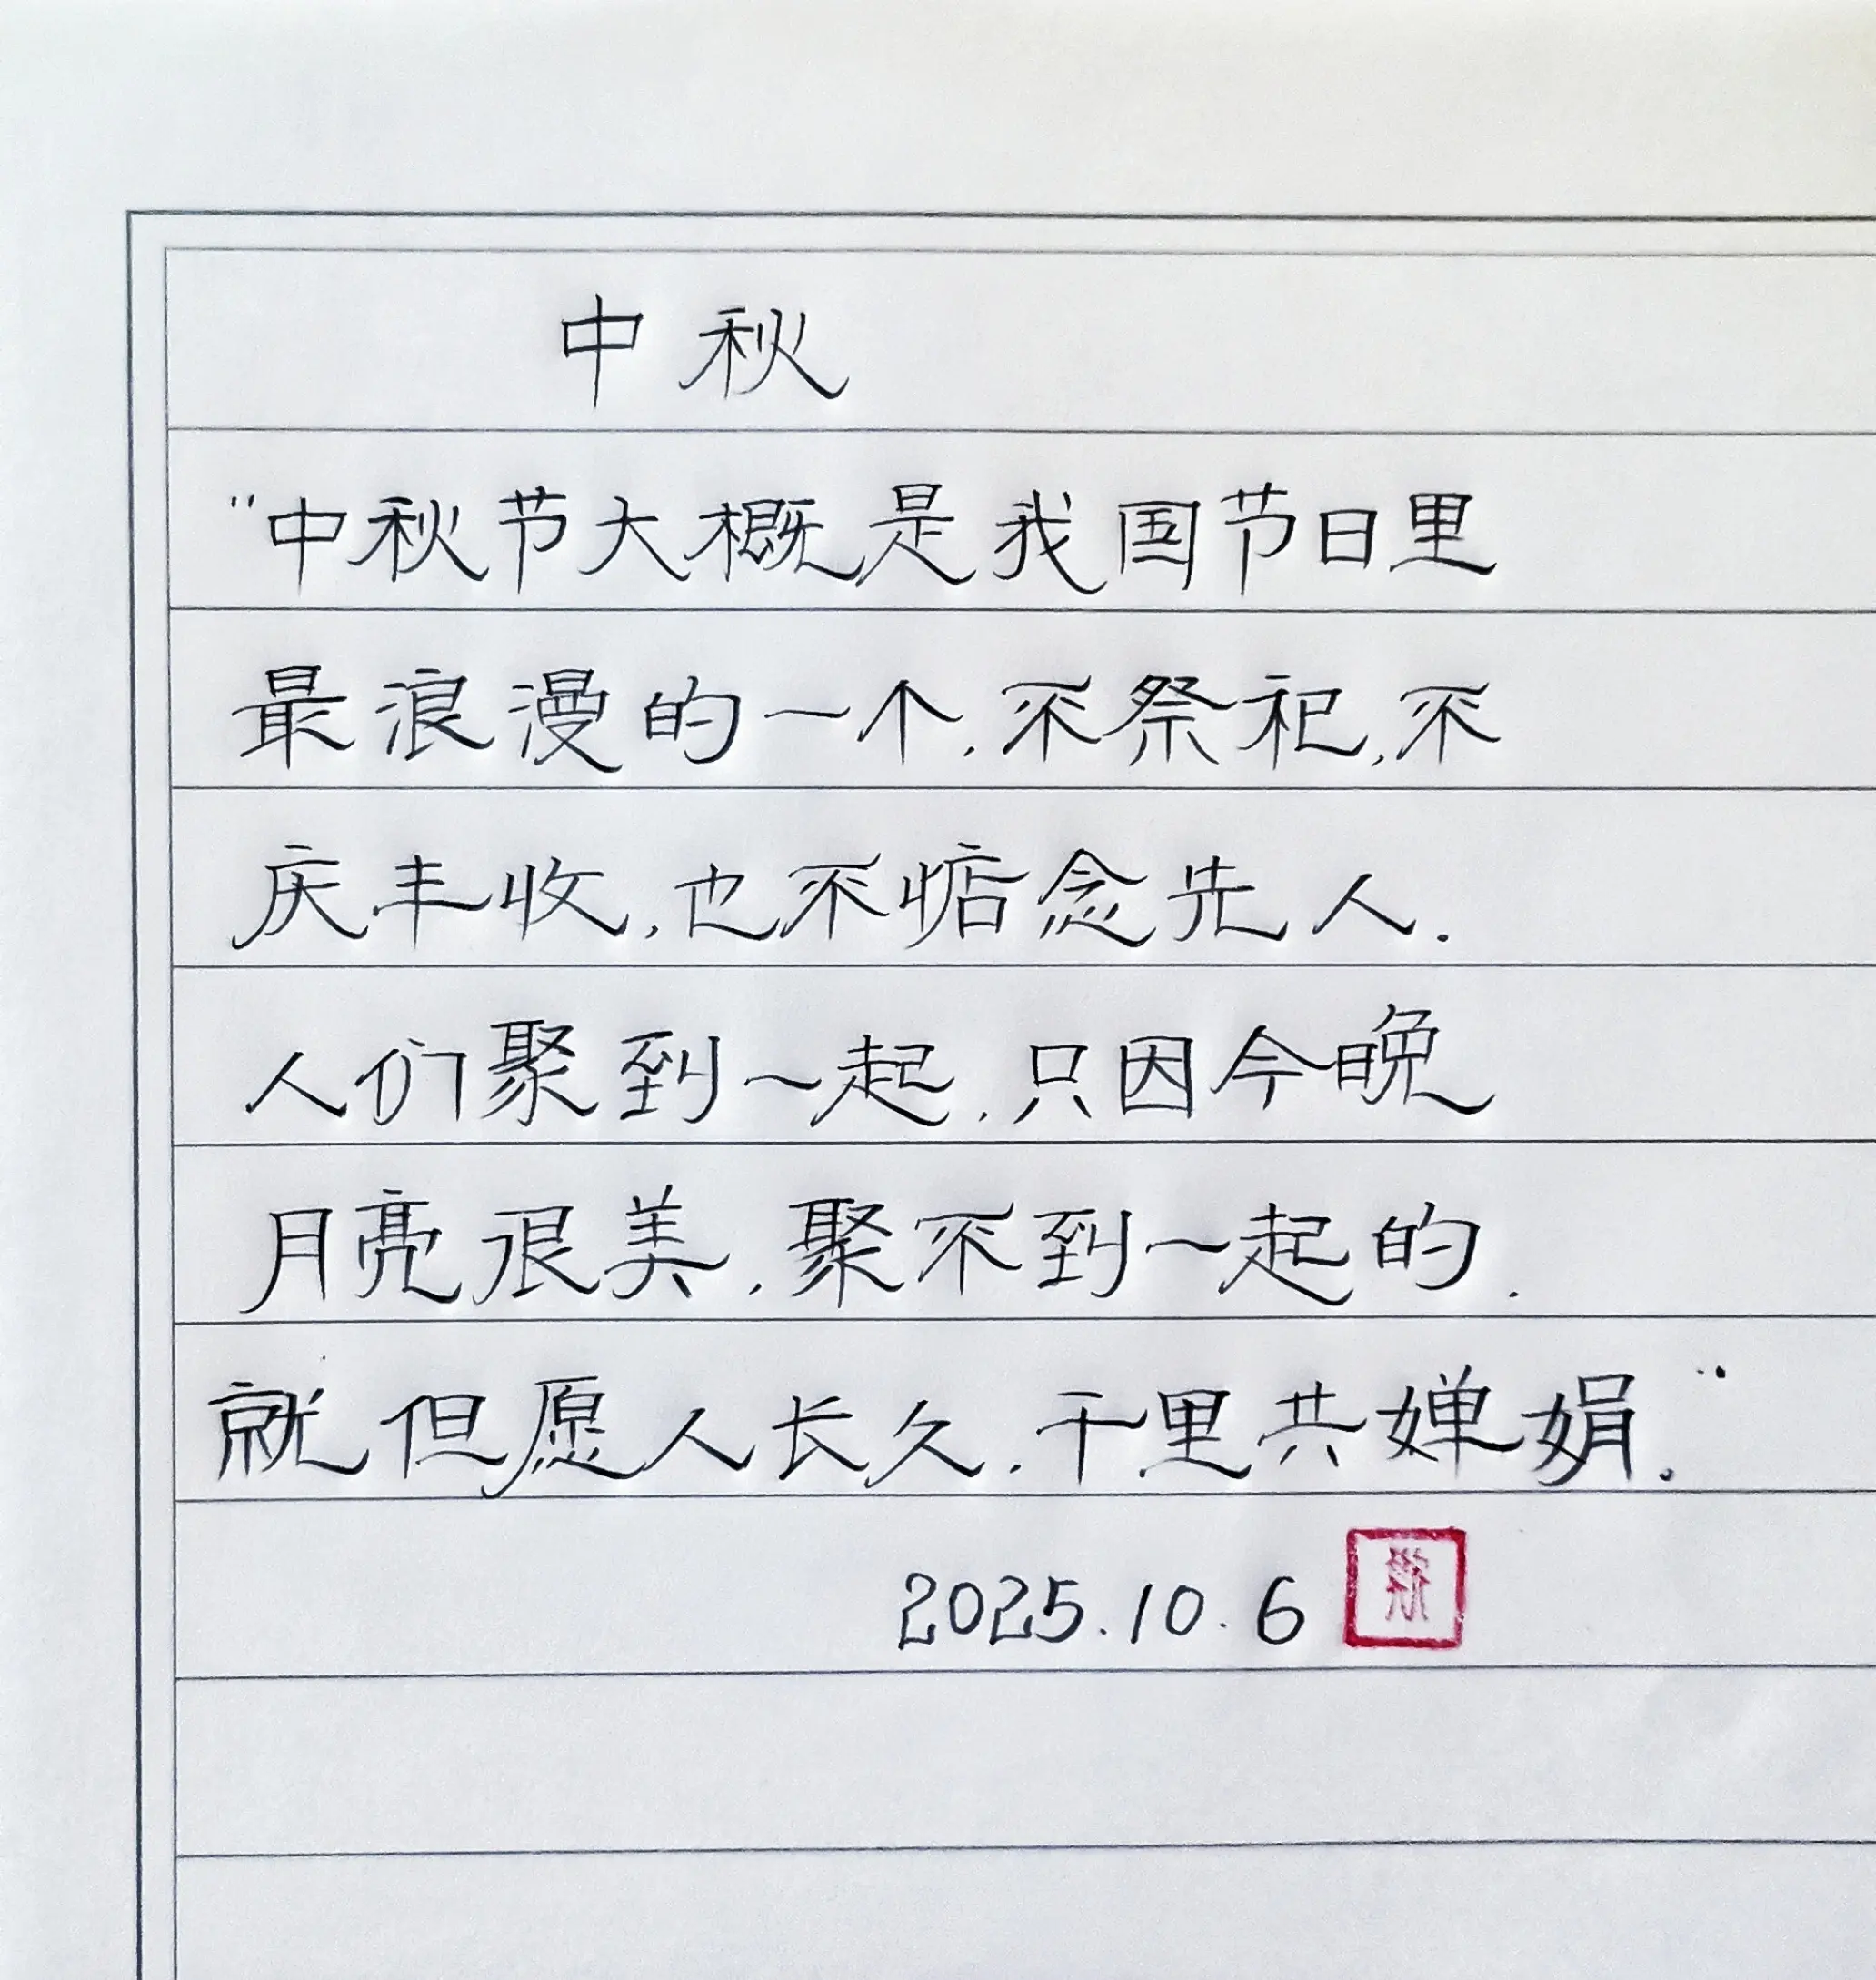 中秋
"中秋节大概是我国节日里
最浪漫的一个,不祭祀,不
庆丰收,也不惦念先人.
人们聚到一起,只因今晚
月亮很美,聚不到一起的.
就但愿人长久.千里共婵娟."
2025.10.6